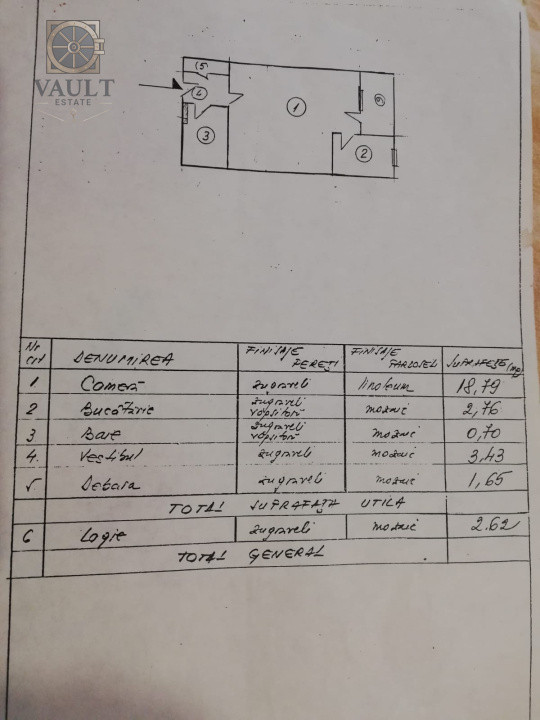 VAULT
ESTATE
5
4
1
6
3
2
Nr crt DENUMIREA FINISAJE PEREȚI FINISAJE PARDOSELI SUPRAFEȚE (mp)
1 Cameră zugrăveli linoleum 18,79
2 Bucătărie zugrăveli vopsitorii mozaic 2,76
3 Baie zugrăveli vopsitorii mozaic 0,70
4. Vestibul zugrăveli mozaic 3,43
5 Debara zugrăveli mozaic 1,65
TOTAL SUPRAFAȚA UTILA
6 Logie zugrăveli mozaic 2.62
TOTAL GENERAL